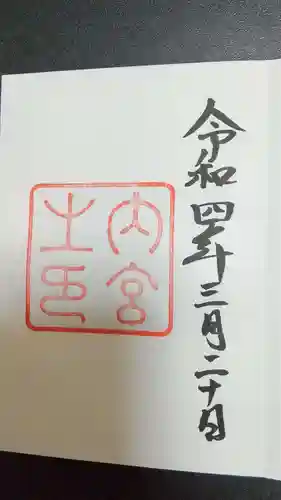 令和四年三月二十日
内宮
土印